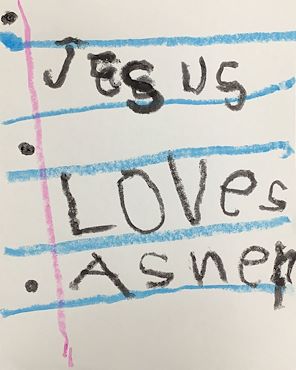 JESUS
LOVes
Asher